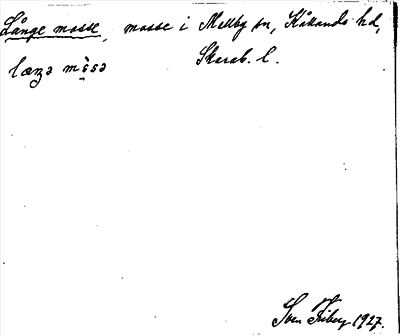 Långe mosse, mosse i Mellby sn, Kållands hd,
Skarab. l.
Sven Friberg 1927.